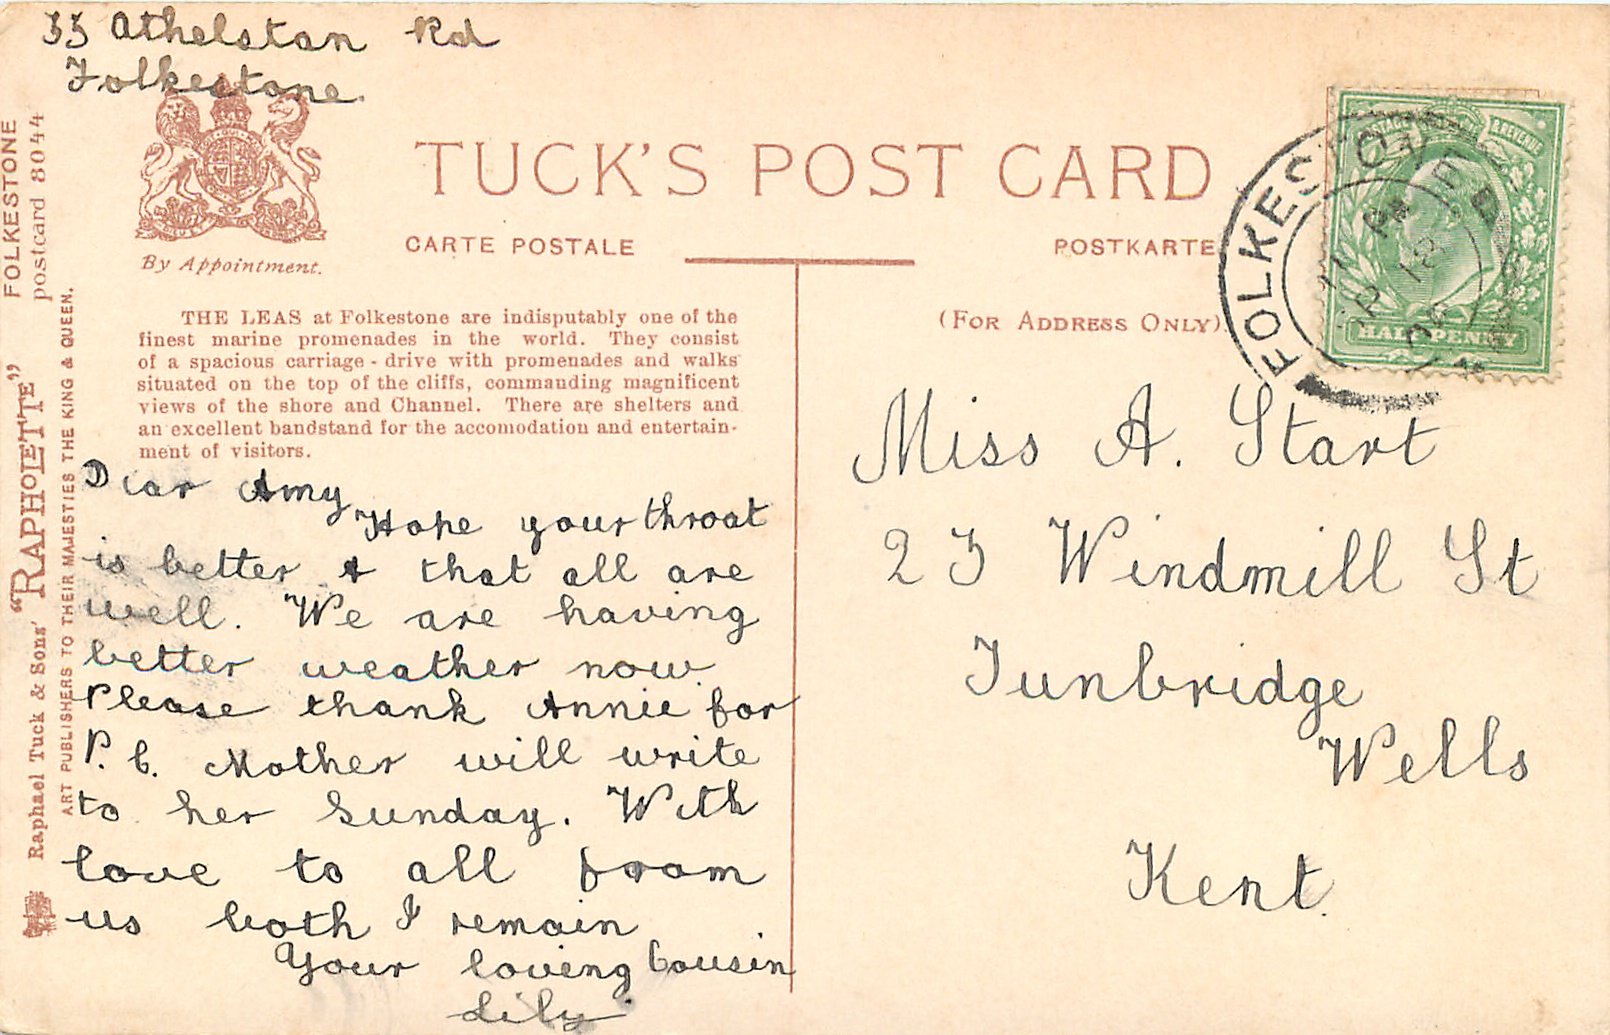 33 Athelstan Rd
Folkestone.
TUCK'S POST CARD
CARTE POSTALE
POSTKARTE
By Appointment.
(FOR ADDRESS ONLY).
THE LEAS at Folkestone are indisputably one of the
finest marine promenades in the world. They consist
of a spacious carriage-drive with promenades and walks
situated on the top of the cliffs, commanding magnificent
views of the shore and Channel. There are shelters and
an excellent bandstand for the accomodation and entertain-
ment of visitors.
Dear Amy
Hope your throat
is better & that all are
well. We are having
better weather now.
Please thank Annie for
P. C. Mother will write
to her Sunday. With
love to all from
us both I remain
Your loving Cousin
Lily
Miss A. Start
23 Windmill St
Tunbridge
Wells
Kent.
FOLKESTONE
POSTAGE & REVENUE
HALF PENNY
FOLKESTONE
postcard 8044
Raphael Tuck & Sons' "RAPHOLETTE"
ART PUBLISHERS TO THEIR MAJESTIES THE KING & QUEEN.